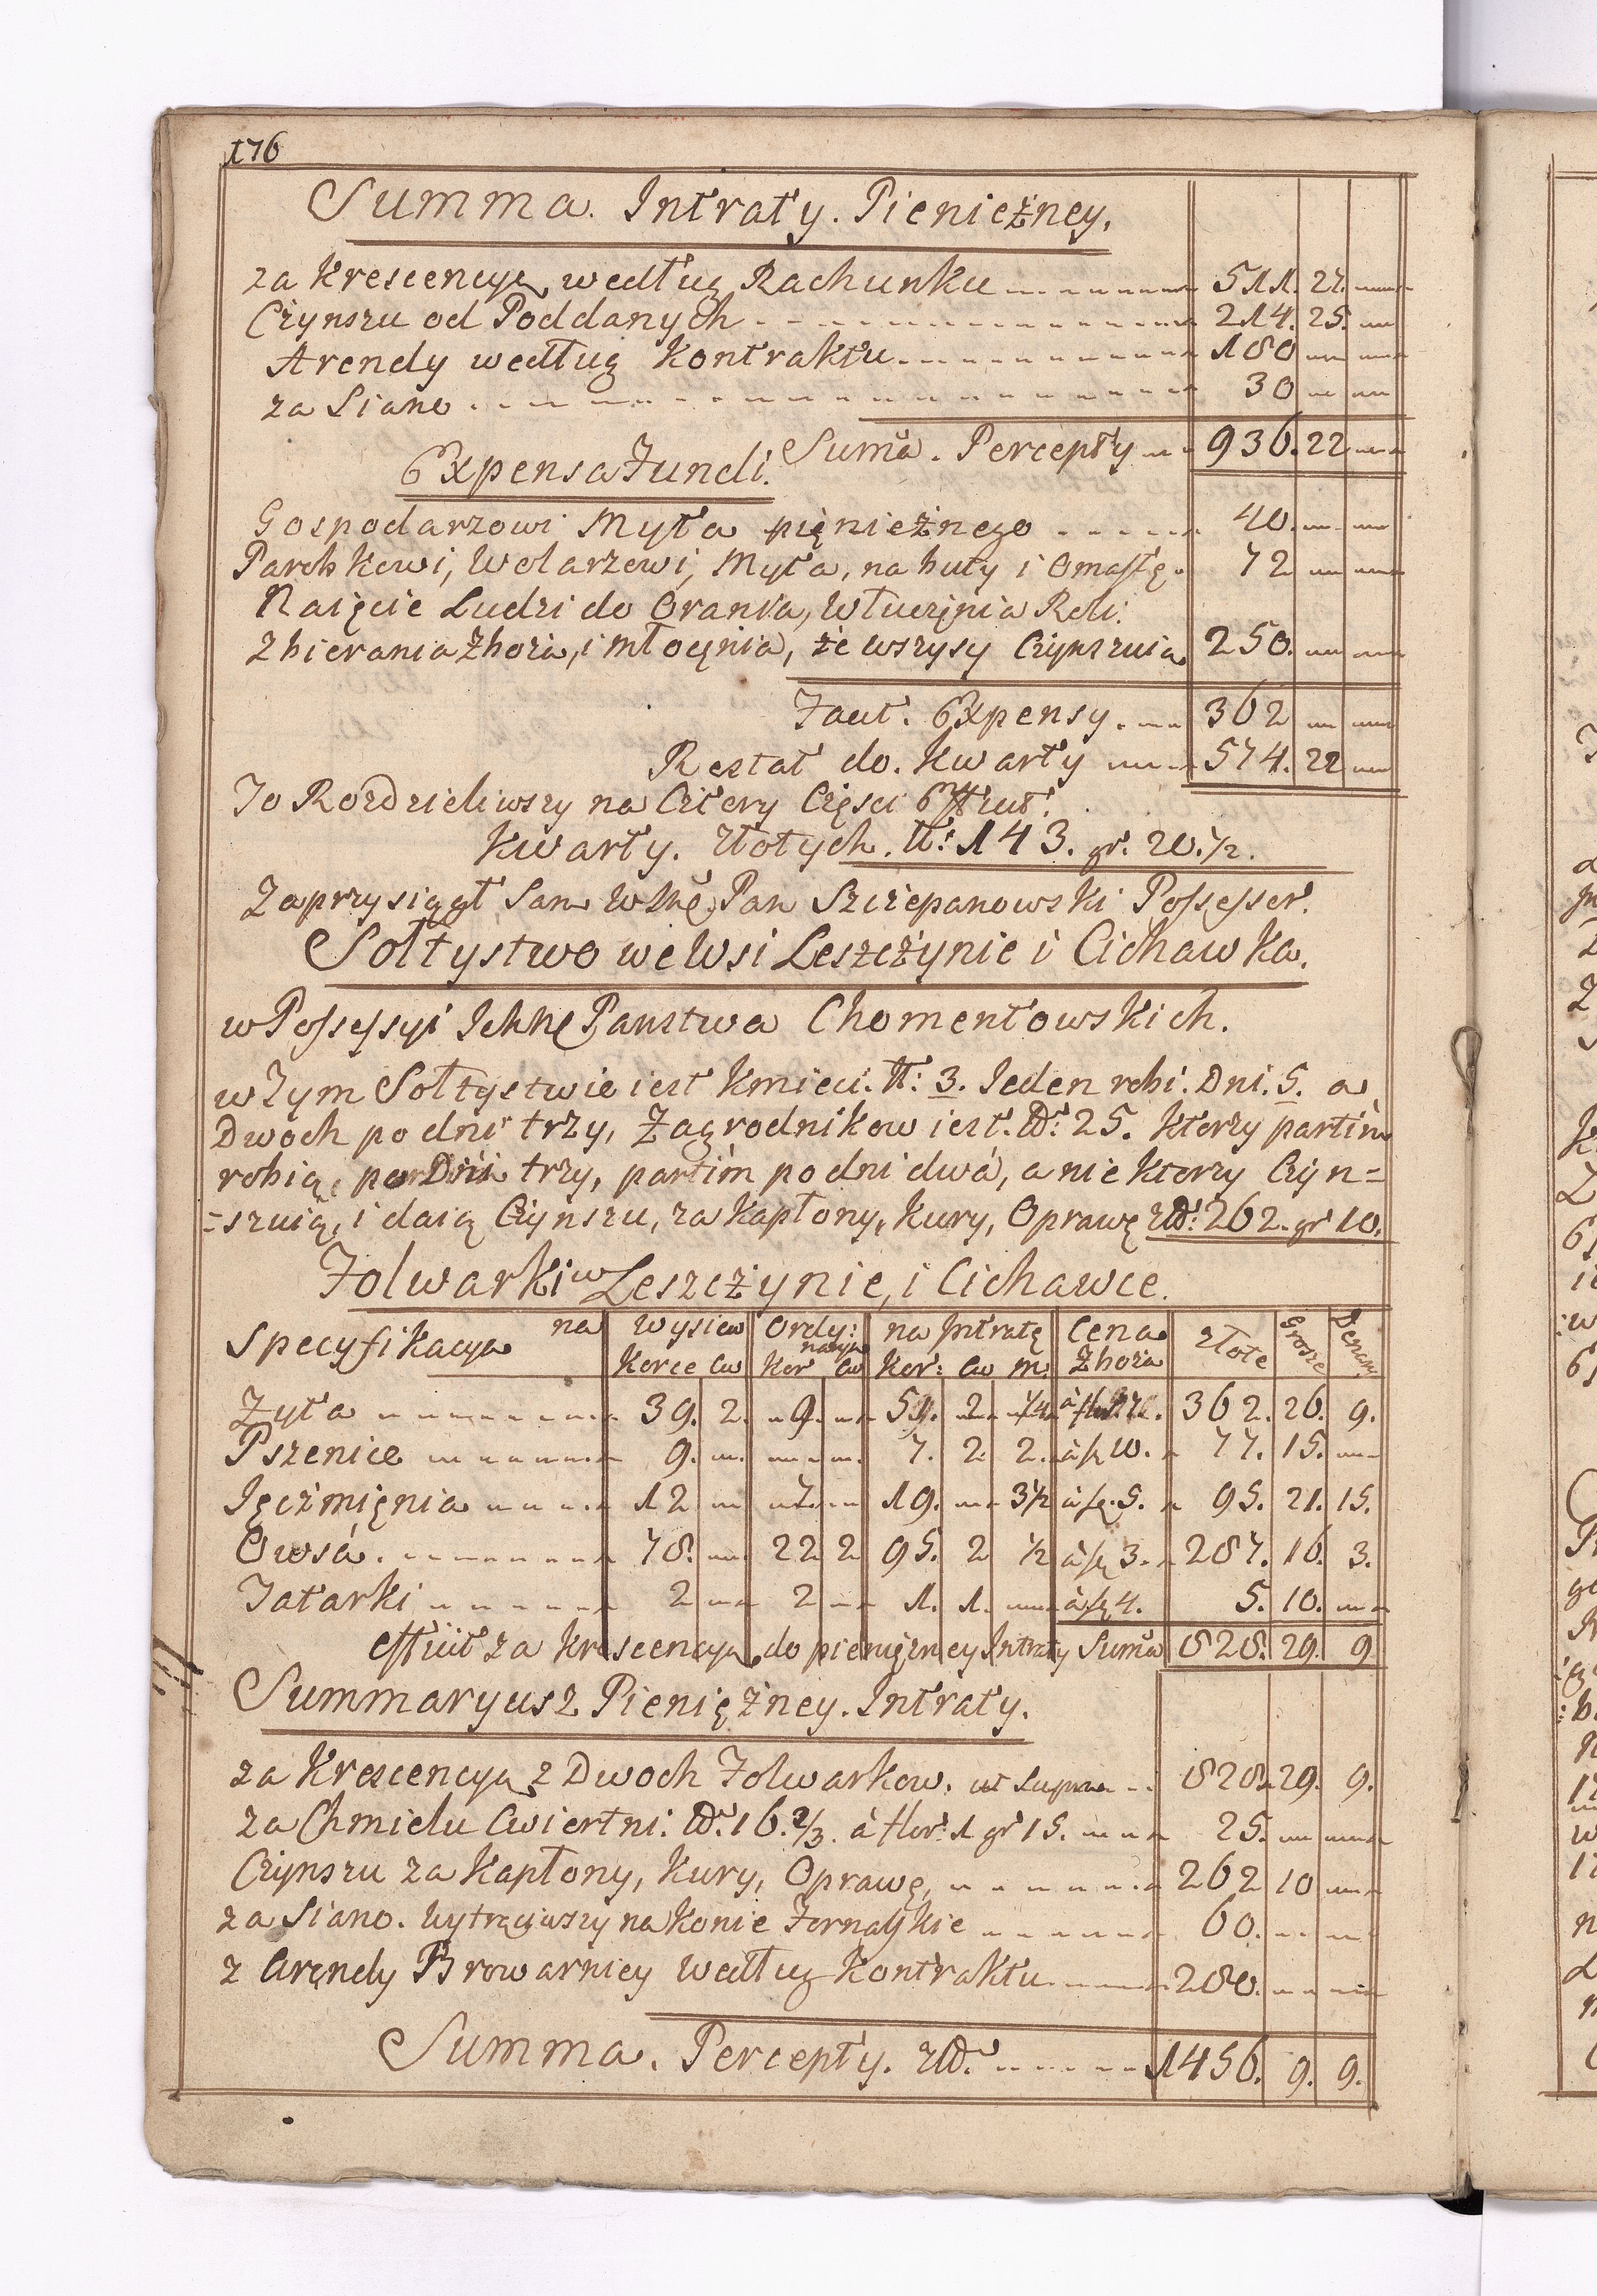 176
Summa. Intraty. Pienieżney.
za Krescencyą według Rachunku 511. 27.
Czynszu od Poddanych 214. 25.
Arendy według Kontraktu 180
za Siano 30
Suma. Percepty 936. 22
Expensa Fundi.
Gospodarzowi Myta pięnieżnego 40.
Parobkowi, Wolarzowi, Myta, na buty i Omastę. 72
Naięcie Ludzi do Orania, Włuczęnia Roli.
Zbierania Zboża, i młocęnia, że wszyscy Czynszuią 250.
Facit. Expensy. 362
Restat do. Kwarty 574. 22
To Rozdzieliwszy na Cztery Części
Kwarty. Złotych. N: 143. gr. 20. 1/2.
Zaprzysiągł Sam Pan Szczepanowski Possessor.
Sołtystwo we Wsi Leszczynie i Cichawka.
w Possessyi Panstwa Chomentowskich.
w Tym Sołtystwie iest Kmieci. N: 3. Ieden robi. Dni. 5. a
Dwoch po dni trzy, Zagrodnikow iest. N: 25. Ktorzy partim
robią, po Dni trzy, partim po dni dwá, a niektorzy Czyn=
=szuią, i daią Czynszu, za Kapłony, Kury, Oprawę zł: 262. gr 10.
Folwarki w Leszczynie, i Cichawce.
Specyfikacya na Wysiew Ordy: narya na Intratę Cena Zboża złote Grosze Denary
Korce Cw Kor Cw Kor: Cw m.
Żyta 39. 2. 9. 51. 2 1/4 362. 26. 9.
Pszenice 9. 7. 2 2. à fl 10. 77. 15.
Ięczmięnia 12 7. 19. 3 1/2 à fl. 5. 95. 21. 15.
Owsá. 78. 22 2 95. 2 1/2 à fl 3. 287. 16. 3.
Tatarki 2 2 1. 1. à fl 4. 5. 10.
efficit za Krescencyą do pienięzney Intraty Suma 828. 29. 9
Summaryusz Pieniężney. Intraty.
za Krescencyą z Dwoch Folwarkow. ut supra 828. 29. 9.
za Chmielu Cwiertni. N: 16. 2/3. à flor: 1 gr 15. 25.
Czynszu za Kapłony, Kury, Oprawę, 262 10
za Siano. Wytrąciwszy na Konie Fornalskie 60.
z Aręndy Browarniey według Kontraktu 280.
Summa. Percepty. zł. 1456. 9. 9.